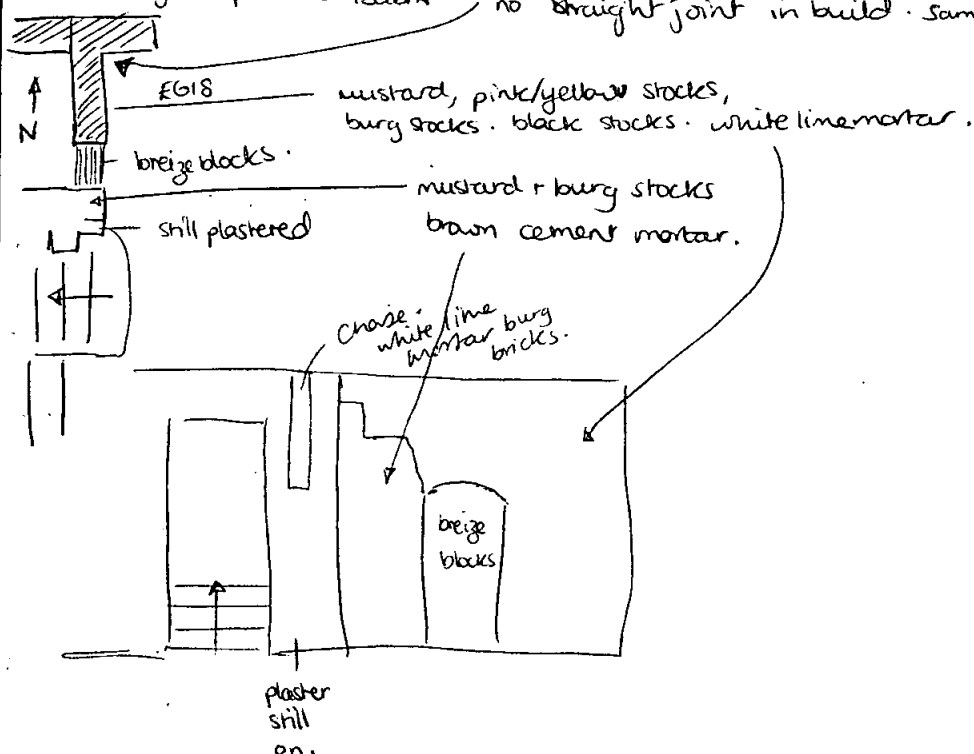 no straight joint in build. Sam
EG18
mustard, pink/yellow stocks,
burg stocks. black stocks. white lime mortar.
N
breize blocks.
mustard + burg stocks
still plastered
brown cement mortar.
chase.
white lime
mortar burg
bricks.
breize
blocks
plaster
still
on.